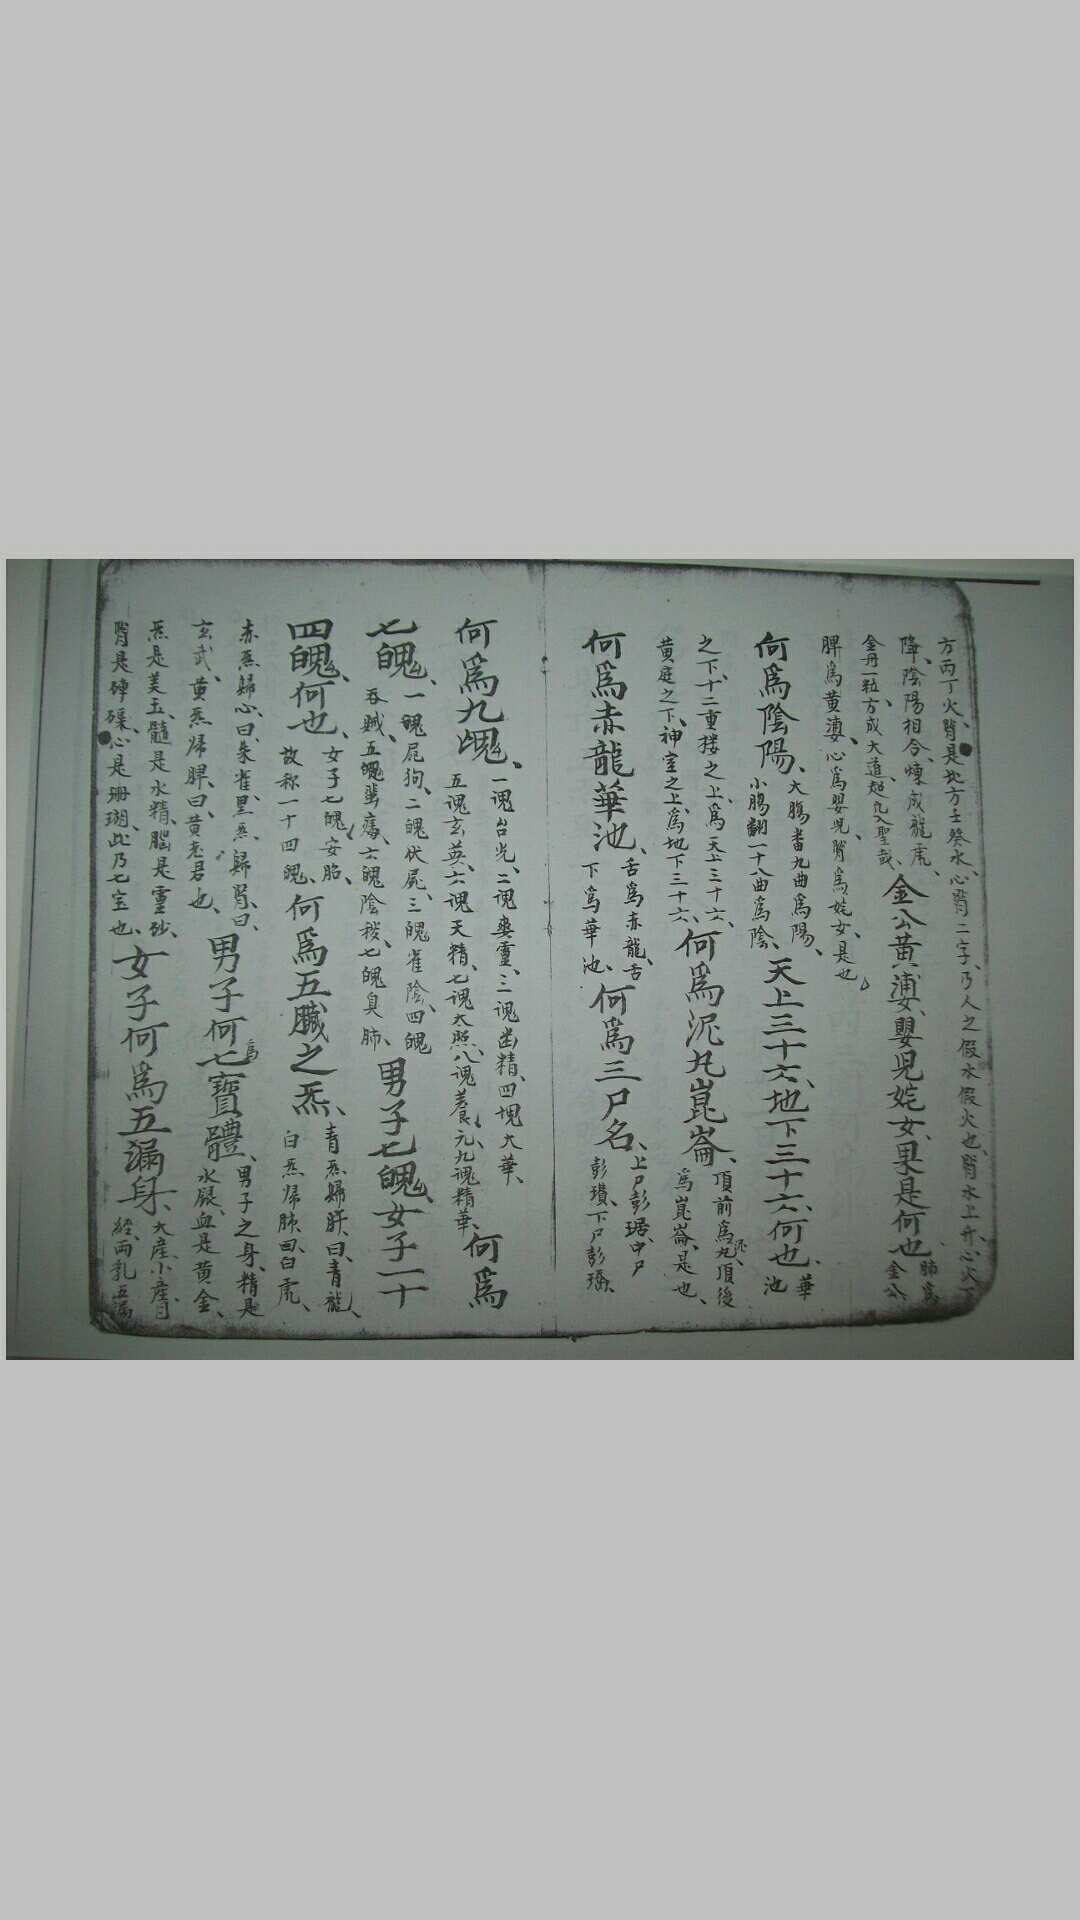 方丙丁火、腎是北方壬癸水、心腎二字、乃人之假水假火也、腎水上升、心火下
降、陰陽相合、煉成龍虎、
金丹一粒、方成大道、超凡入聖哉、
金公黃婆、嬰兒姹女、果是何也、
肺為
金公
脾為黃婆、心為嬰兒、腎為姹女、是也
何為陰陽、
大腸畨九曲為陽、
小腸翻一十八曲為陰、
天上三十六、地下三十六、何也、
華
池
之下、十二重楼之上、為天上三十六、
黃庭之下、神室之上、為地下三十六、
何為泥丸崑崙、
頂前為泥丸、項後
為崑崙、是也、
何為赤龍華池、
舌為赤龍、舌
下為華池、
何為三尸名、
上尸彭琚、中尸
彭瓆、下尸彭璚、
何為九魂、
一魂台光、二魂爽靈、三魂幽精、四魂太華、
五魂玄英、六魂天精、七魂太照、八魂養元、九魂精華、
何為
七魄、
一魄屍狗、二魄伏屍、三魄雀陰、四魄
吞賊、五魄蜚瘺、六魄陰穢、七魄臭肺、
男子七魄、女子一十
四魄、何也、
女子七魄安胎、
故称一十四魄、
何為五臟之炁、
青炁歸肝、曰、青龍、
白炁歸肺、曰、白虎、
赤炁歸心、曰、朱雀、黑炁歸腎、曰、
玄武、黃炁歸脾、曰、黃老君也、
男子何為七寶體、
男子之身、精是
水凝、血是黃金、
炁是美玉、髓是水精、腦是靈砂、
腎是硨磲、心是珊瑚、此乃七宝也、
女子何為五漏身、
大產、小產、月
經、兩乳、五漏